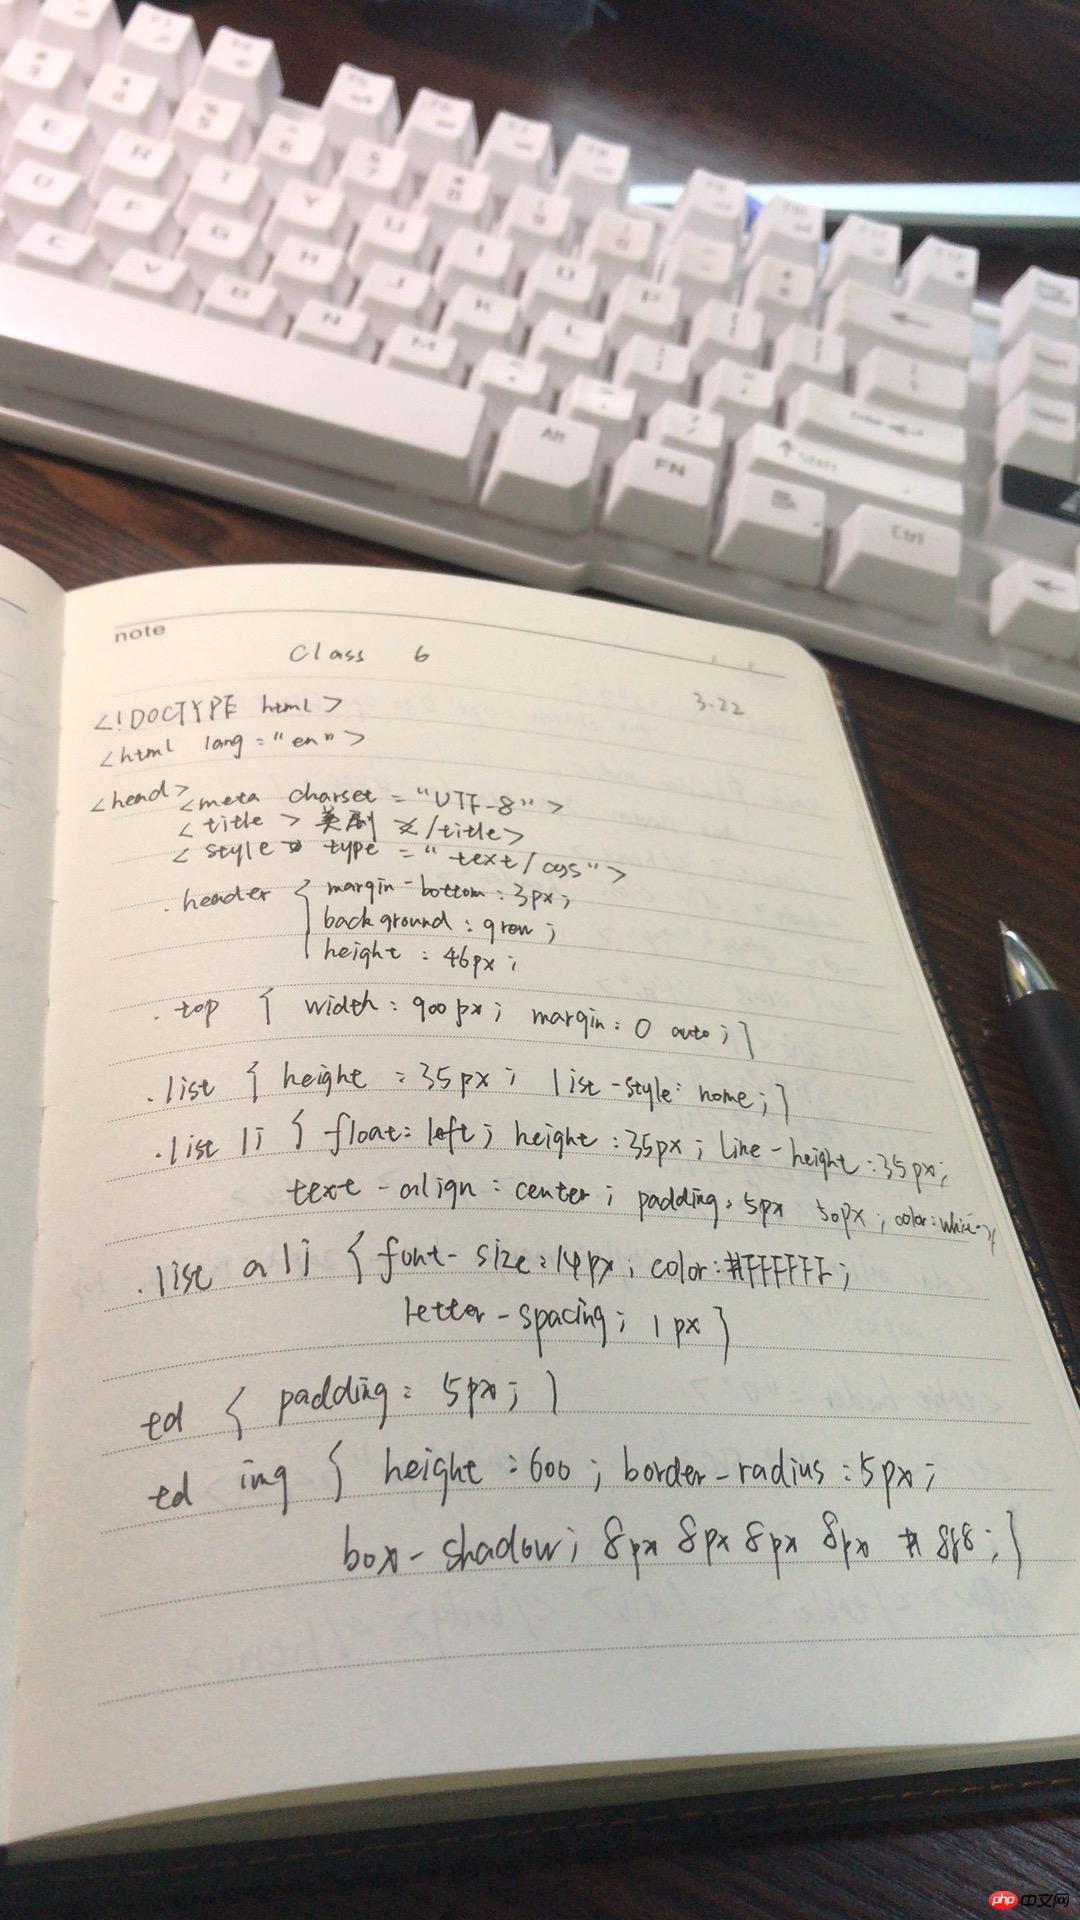 note
Class 6
3.22
<!DOCTYPE html>
<html lang="en">
<head>
<meta charset="UTF-8">
<title>美剧</title>
<style type="text/css">
.header { margin-bottom:3px;
background:grow;
height:46px;
.top { width:900px; margin:0 auto;}
.list { height:35px; list-style:home;}
.list li { float:left; height:35px; line-height:35px;
text-align:center; padding:5px 50px; color:white;}
.list a li { font-size:14px; color:#FFFFFF;
letter-spacing; 1px }
td { padding:5px; }
td img { height:600; border-radius:5px;
box-shadow; 8px 8px 8px 8px #8f8;}
E R T Y U I O P
D F G H J K L
C V B N M
Alt FN Ctrl
Shift
php 中文网